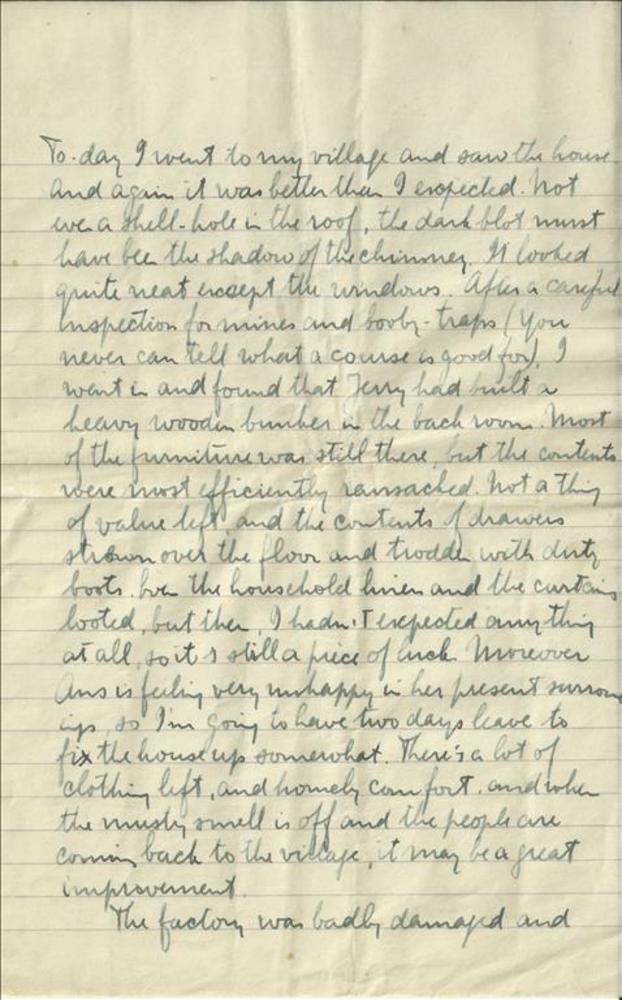 To-day I went to my village and saw the house.
And again it was better than I expected. Not
even a shell-hole in the roof, the dark blot must
have been the shadow of the chimney. It looked
quite neat except the windows. After a careful
inspection for mines and booby-traps (You
never can tell what a course is good for), I
went in and found that Jerry had built a
heavy wooden bunker in the back room. Most
of the furniture was still there, but the contents
were most efficiently ransacked. Not a thing
of value left, and the contents of drawers
strewn over the floor and trodden with dirty
boots. Even the household linen and the curtains
looted, but then, I hadn't expected anything
at all, so it's still a piece of luck. Moreover
Ans is feeling very unhappy in her present surround
ings, so I'm going to have two days leave to
fix the house up somewhat. There's a lot of
clothing left, and homely comfort, and when
the musty smell is off and the people are
coming back to the village, it may be a great
improvement.
The factory was badly damaged and